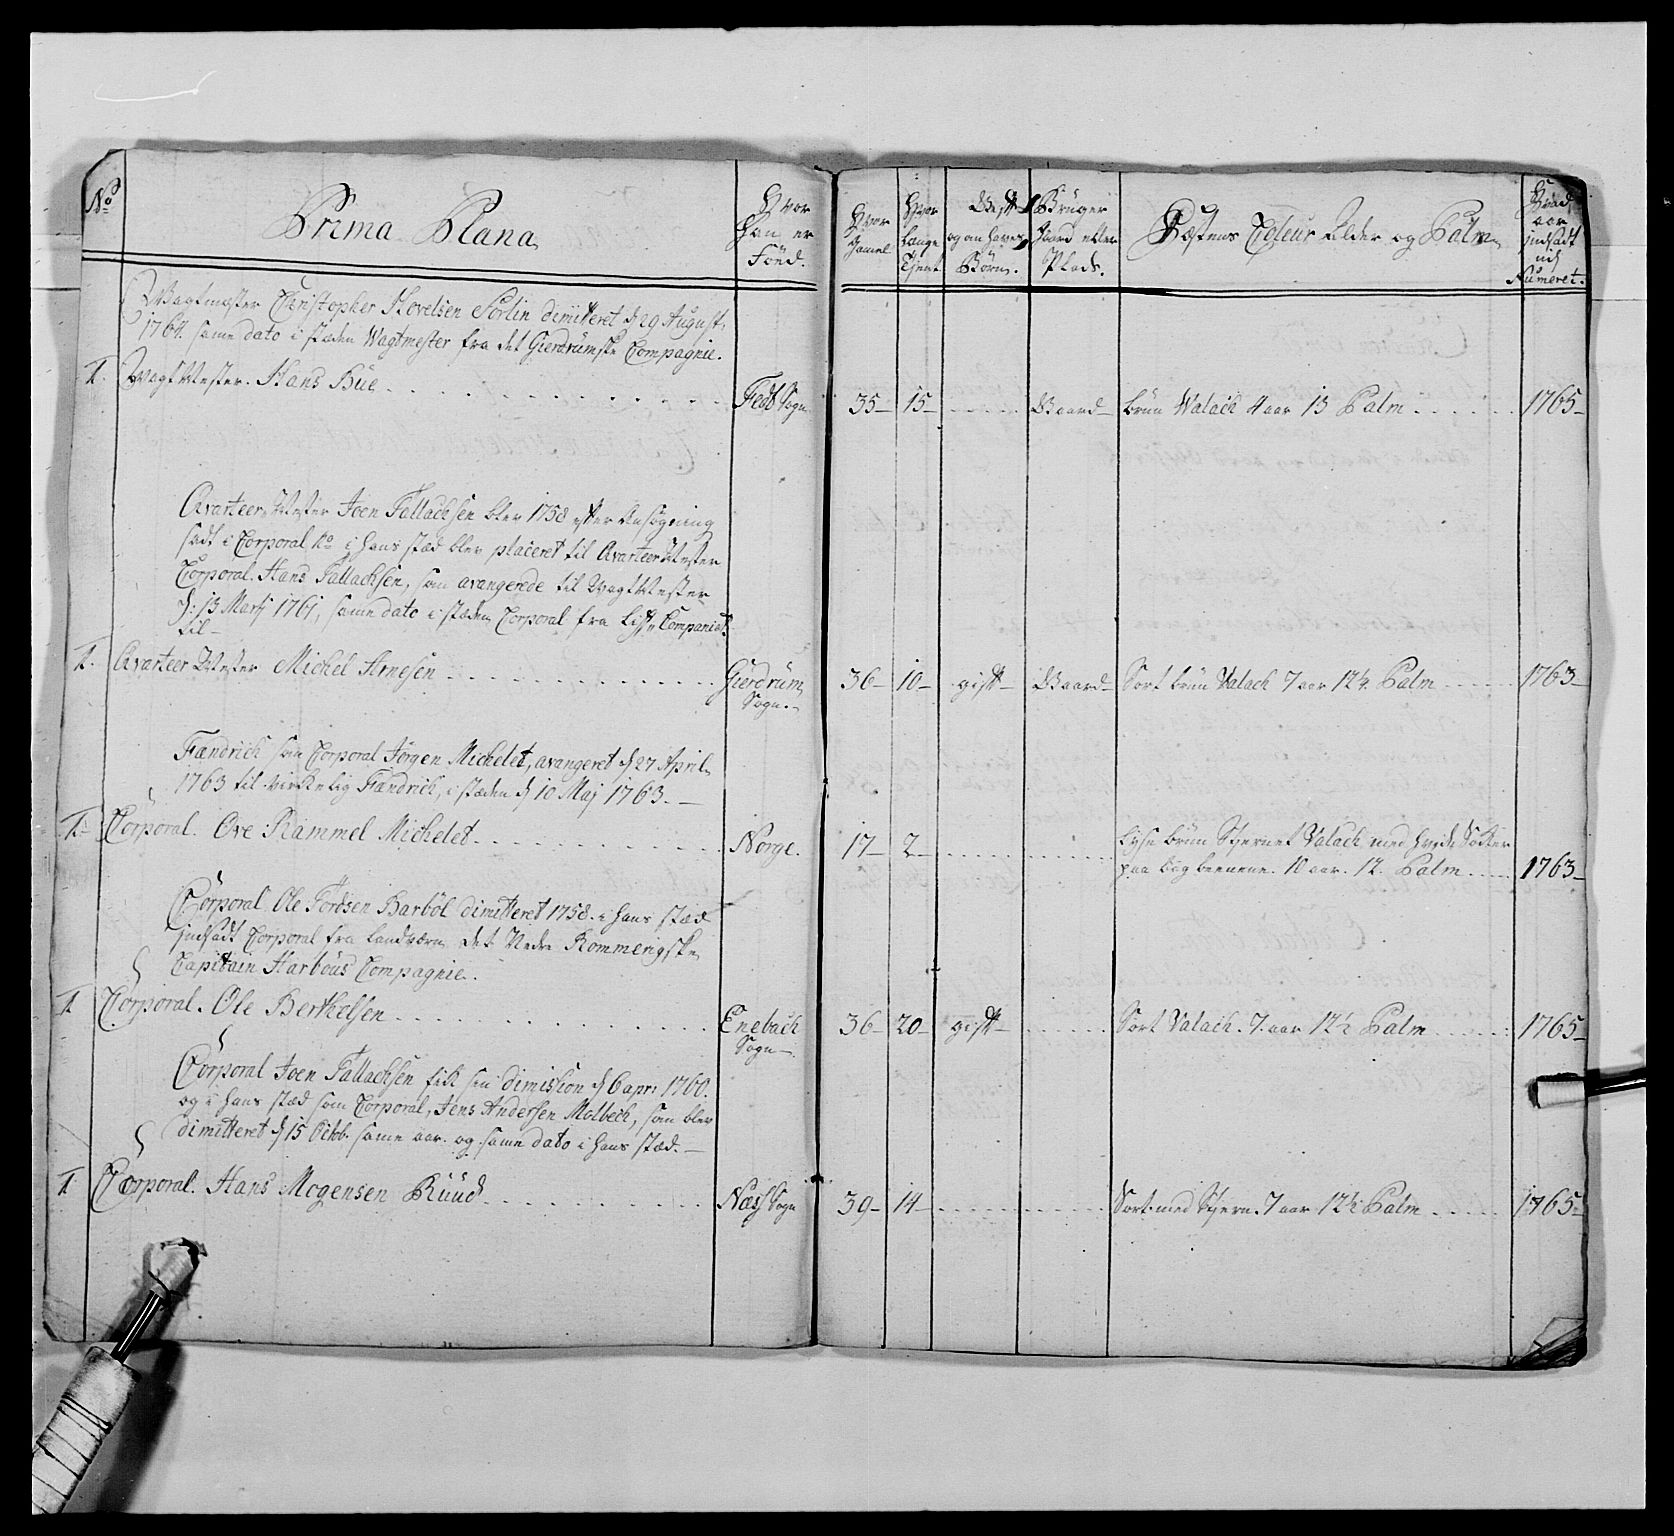 No
Prima Plana
Hvor
han er
Föed.
Hvor
Gamel
Hvor
Lange
Tjent
Gift
og om haver
Börn.
Bruger
Gaard eller
Plads.
Hæstens Coleur Alder og Palm
Hvad
aar
jndsadt
udj
Numeret.
Wagtmæster Christopher Hovelsen Sörlin dimitteret d 29 August
1764. same dato i stæden Wagtmester fra det Gierdrumske Compagnie.
1. WagtMester. Hans Bue Fedt Sogn 35 15 Gaard brun Valach 4 aar 13 Palm 1765
Qvarteer Mester Joen Tallachsen blev 1758 efter Ansøgning
sadt i Corporal No i hans stæd blev placeret til Qvarteer Mester
Corporal. Hans Tallachsen, som avangerede til WagtMester
d: 13 Martj 1761, same dato i stæden Corporal fra Liff Companiet
til
1. Qvarteer Mester Michel Arnesen Gierdrum Sogn. 36 10 gift Gaard Sort brun Valach 7 aar 12¼. Palm 1763
Fændrich som Corporal Jörgen Michelet, avangeret d 27 April
1763 til virkelig Fændrich, i stæden d 10 Maj 1763.
1. Corporal. Ove Rammel Michelet Norge. 17 2 lyse brun Stjernet Valach med hvide Sokker
paa bag beenene. 10 aar. 12. Palm 1763
Corporal Ole Tordsen Barböl dimitteret 1758. i hans stæd
jndsadt Corporal fra Landværn det Nedre Rommerigske
Capitain Harboüs Compagnie.
1 Corporal. Ole Berthelsen Enebach Sogn 36 20 gift Sort Valach. 7. aar 12½ Palm 1765
Corporal Joen Tallachsen fik sin dimission d 6 apr: 1760.
og i hans stæd som Corporal, Jens Andersen Molbech, som blev
dimitteret d 15 Octb. same aar. og same dato i hans stæd.
1 Corporal. Hans Mogensen Ruud Næss Sogn 39 14 Sort med Stjern. 7 aar 12½ Palm 1765